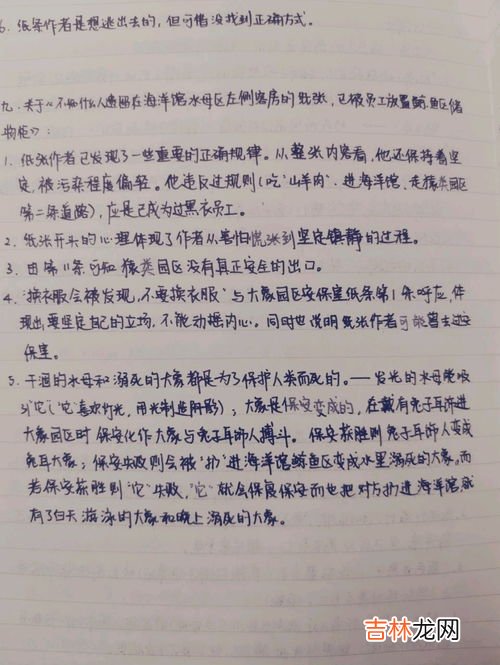 6. 纸条作者是想逃出去的,但可惜没找到正确方式。
九. 关于《不知什么人遗留在海洋馆水母区左侧客房的纸张,已被员工放置鲸鱼区储
物柜》:
1. 纸张作者已发现了一些重要的正确规律。从整张内容看,他还保持着坚
定,被污染程度偏轻。他违反过规则(吃"山羊肉"、进海洋馆、走猿类园区
第二条道路),应是已成为过黑衣员工。
2. 纸张开头的心理体现了作者从害怕慌张到坚定镇静的过程。
3. 由第11条可知猿类园区没有真正安全的出口。
4. "换衣服会被发现,不要换衣服"与大象园区安保室纸条第1条呼应,体
现出要坚定自己的立场,不能动摇内心。同时也说明纸张作者可能曾去过安
保室。
5. 干涸的水母和溺死的大象都是为了保护人类而死的。——发光的水母能吸
引"它"("它"喜欢灯光,用光制造阴影);大象是保安变成的,在戴有兔子耳饰进
大象园区时 保安化作大象与兔子耳饰人搏斗。保安若胜则兔子耳饰人变成
兔耳大象;保安失败则会被"扔"进海洋馆鲸鱼区变成水里溺死的大象。而
若保安获胜则"它"失败,"它"就会保留保安而也把对方扔进海洋馆,就
有了白天游泳的大象和晚上溺死的大象。
吉林龙网